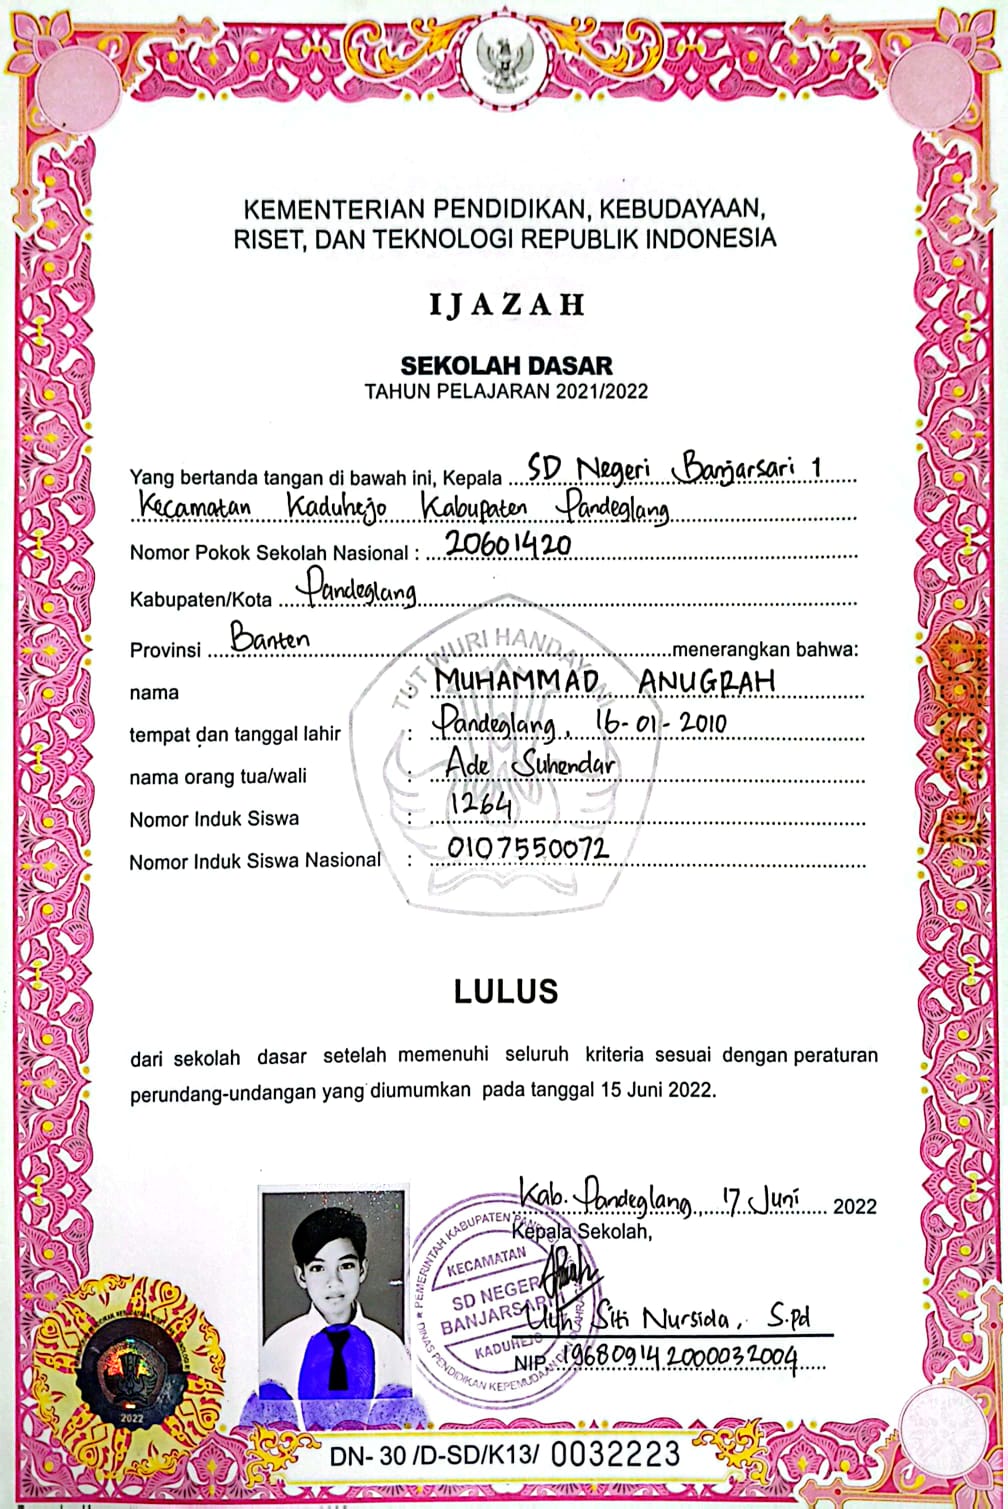 KEMENTERIAN PENDIDIKAN, KEBUDAYAAN,
RISET, DAN TEKNOLOGI REPUBLIK INDONESIA
IJAZAH
SEKOLAH DASAR
TAHUN PELAJARAN 2021/2022
Yang bertanda tangan di bawah ini, Kepala SD Negeri Banjarsari 1
Kecamatan Kaduhejo Kabupaten Pandeglang
Nomor Pokok Sekolah Nasional : 20601420
Kabupaten/Kota Pandeglang
Provinsi Banten menerangkan bahwa:
TUT WURI HANDAYANI
nama : MUHAMMAD ANUGRAH
tempat dan tanggal lahir : Pandeglang, 16-01-2010
nama orang tua/wali : Ade Suhendar
Nomor Induk Siswa : 1264
Nomor Induk Siswa Nasional : 0107550072
LULUS
dari sekolah dasar setelah memenuhi seluruh kriteria sesuai dengan peraturan
perundang-undangan yang diumumkan pada tanggal 15 Juni 2022.
Kab. Pandeglang, 17 Juni 2022
Kepala Sekolah,
PEMERINTAH KABUPATEN
KECAMATAN
SD NEGERI
BANJARSARI 1
KADUHEJO
DINAS PENDIDIKAN KEPEMUDAAN
Siti Nursida, S.Pd
NIP. 196809142000032004
2022
DN-30 /D-SD/K13/ 0032223